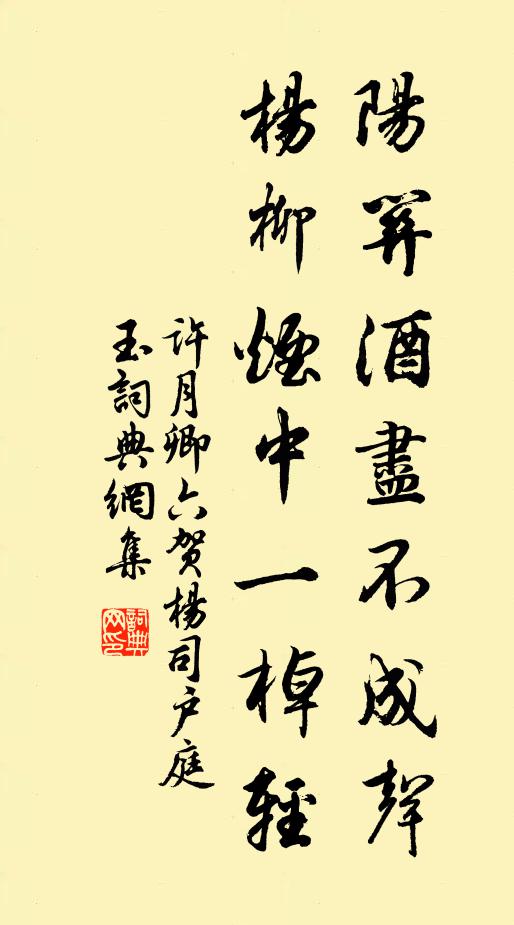 陽關酒盡不成聲
楊柳煙中一棹輕
許月卿六賀楊司戶庭
玉詞典網集
詞典
網印